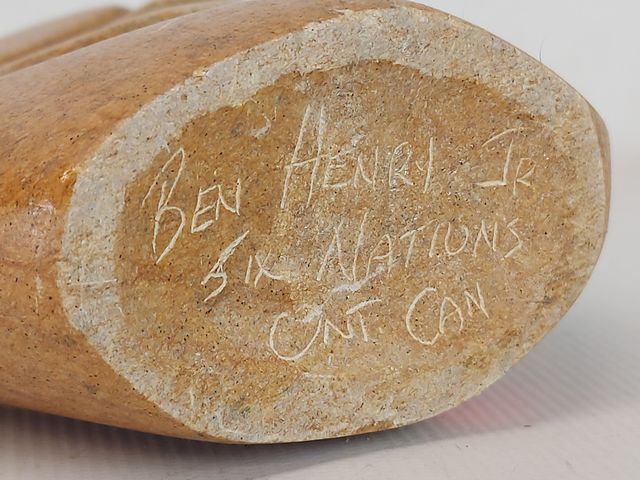 BEN HENRY JR
SIX NATIONS
ONT CAN